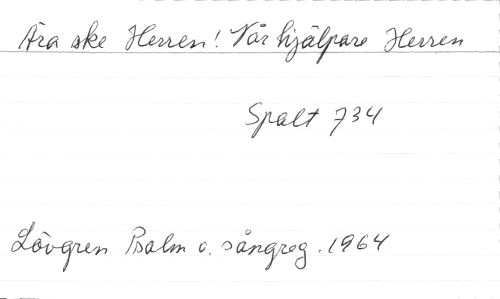 Ära ske Herren! Vår hjälpare Herren
Spalt 734
Lövgren Psalm o. sångreg. 1964